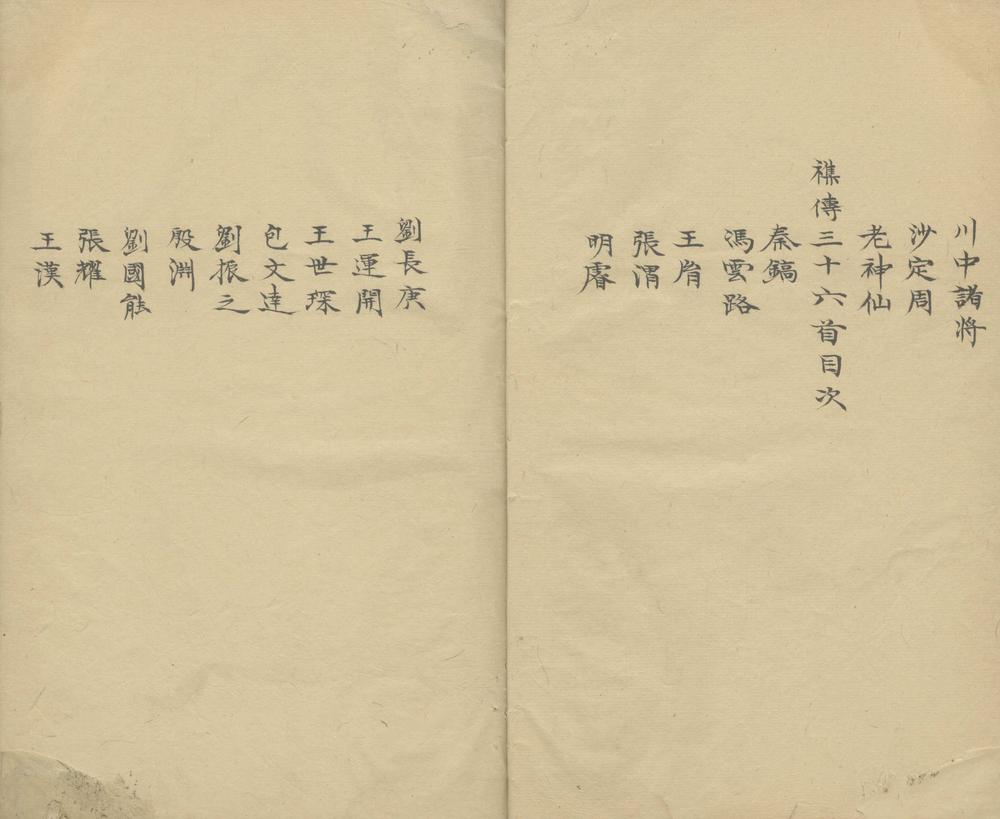 川中諸將
沙定周
老神仙
襍傳三十六首目次
秦鎬
馮雲路
王胷
張渭
明睿
劉長庚
王運開
王世琛
包文達
劉振之
殷淵
劉國能
張耀
王漢